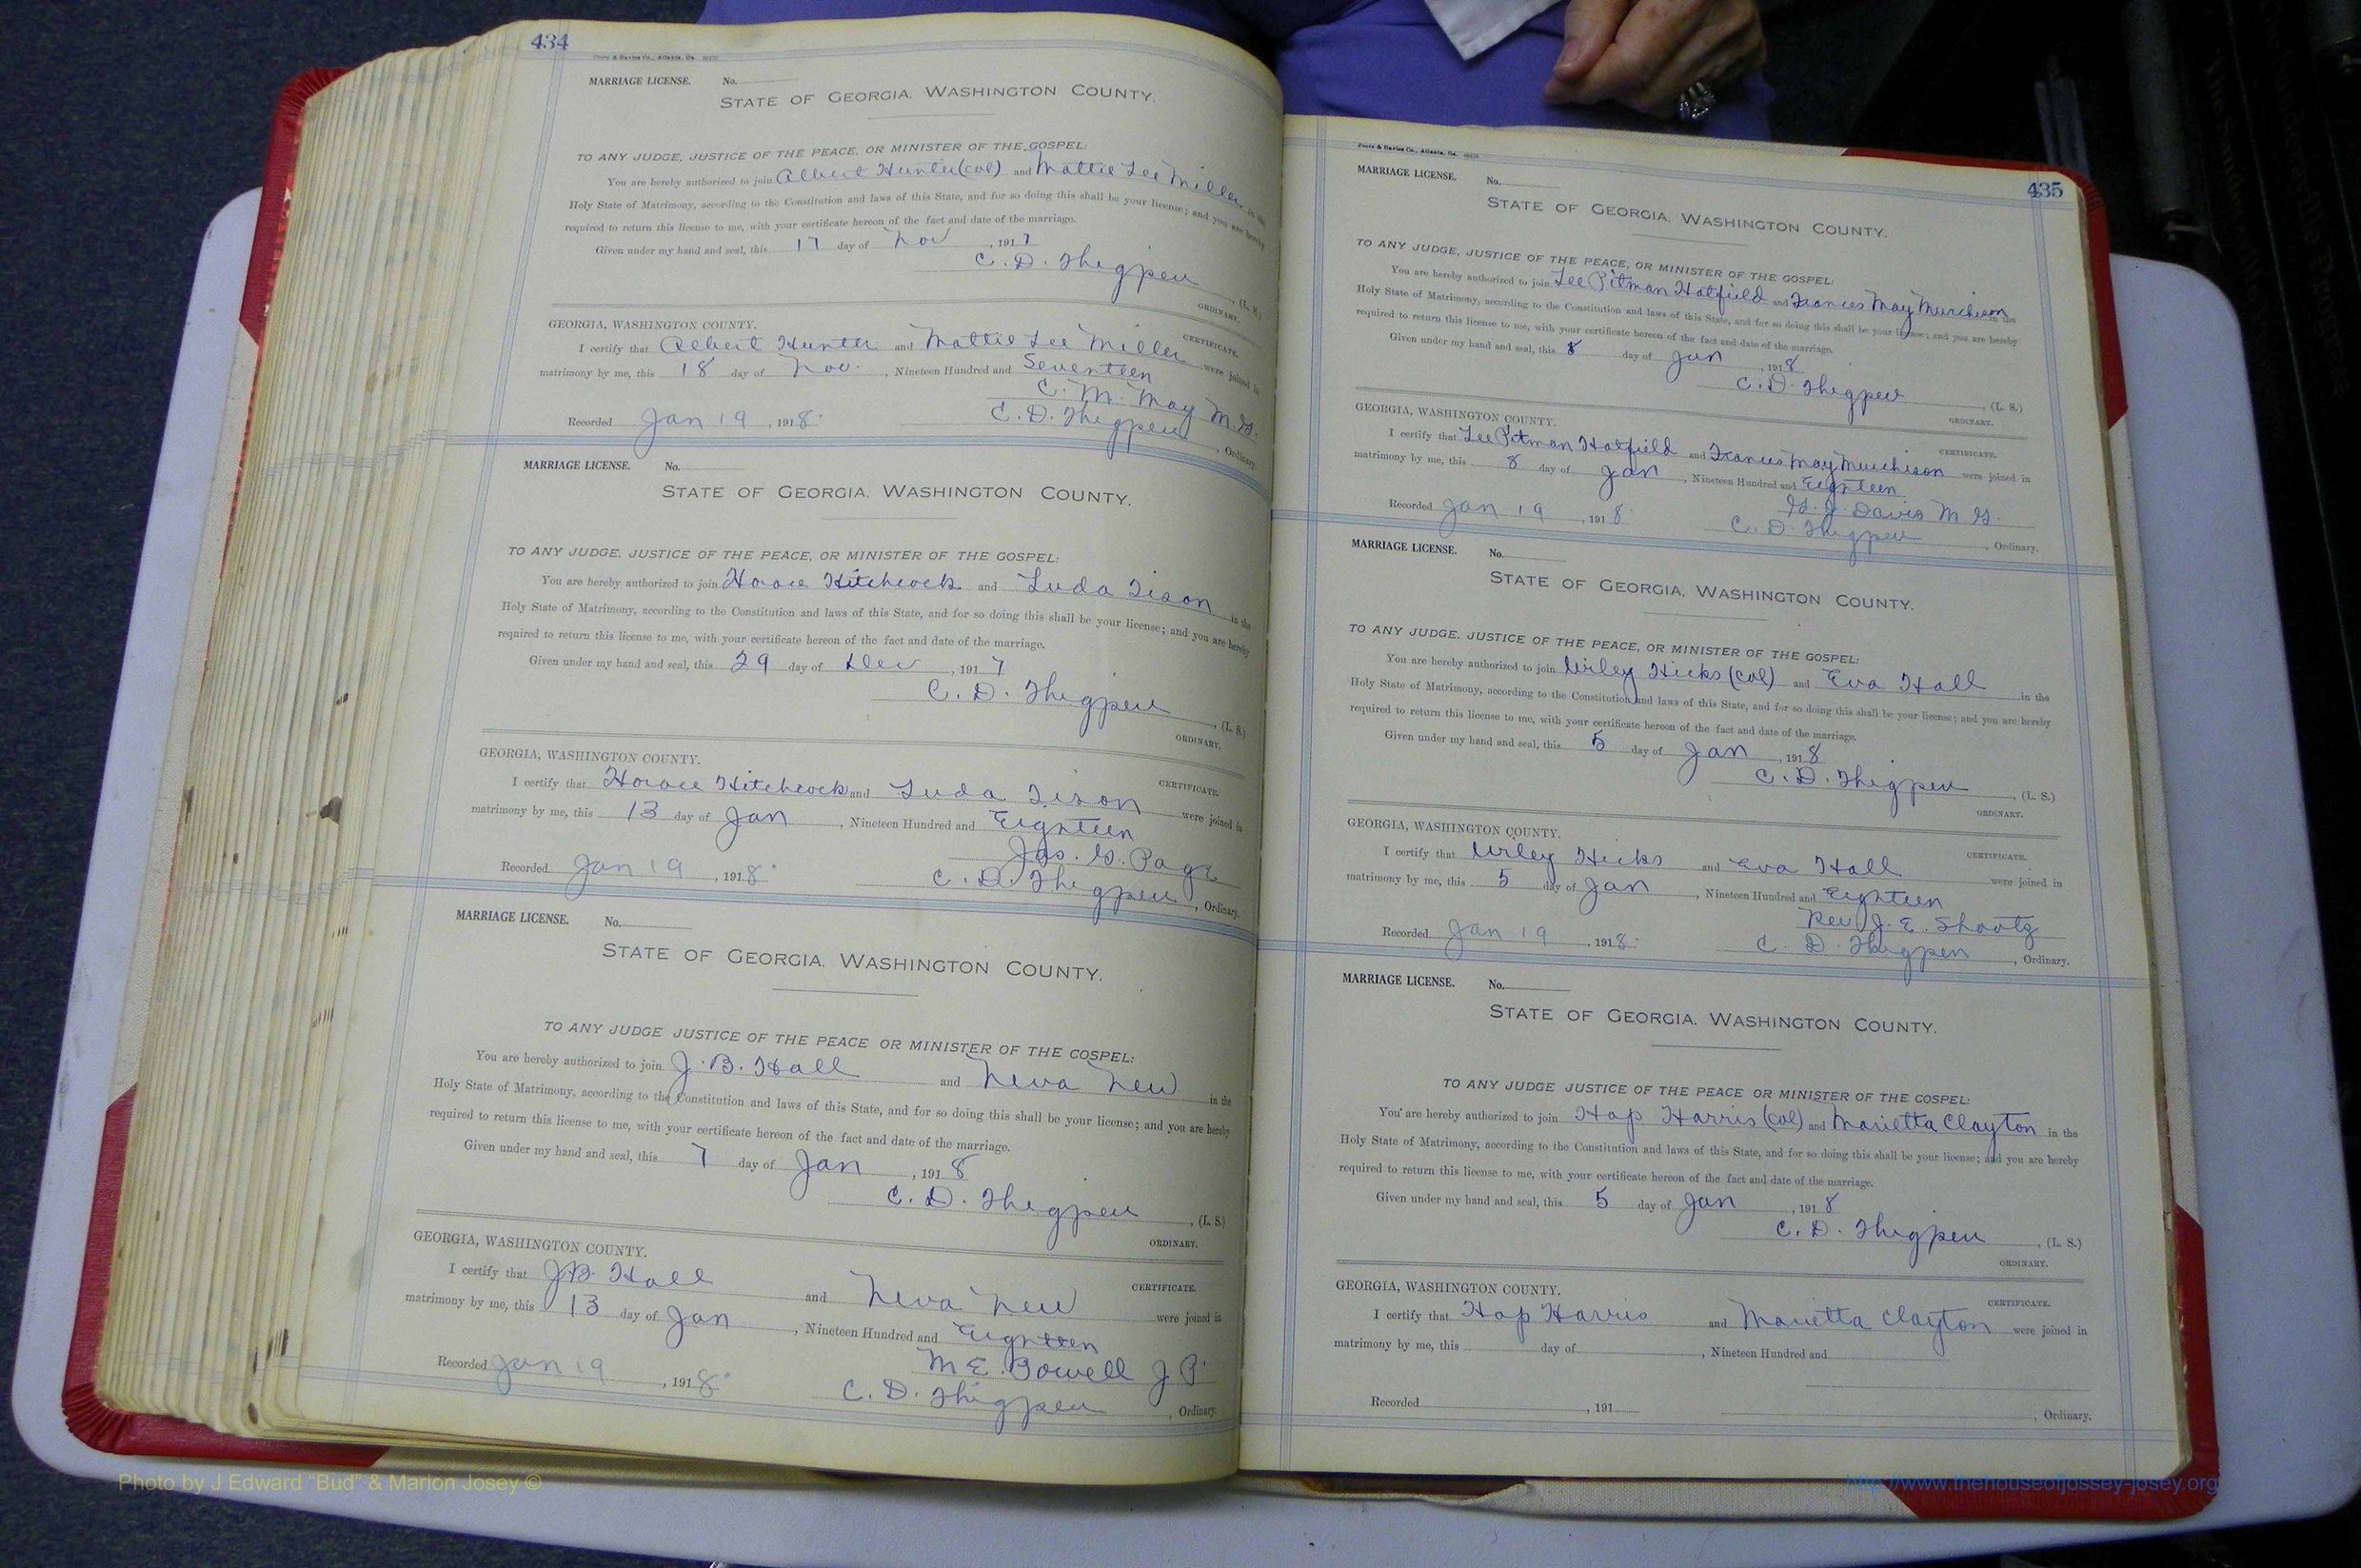 434
Foote & Davies Co., Atlanta, Ga.
MARRIAGE LICENSE. No.
STATE OF GEORGIA, WASHINGTON COUNTY.
TO ANY JUDGE, JUSTICE OF THE PEACE, OR MINISTER OF THE GOSPEL:
You are hereby authorized to join Albert Hunter (col) and Mattie Lee Miller in the
Holy State of Matrimony, according to the Constitution and laws of this State, and for so doing this shall be your license; and you are hereby
required to return this license to me, with your certificate hereon of the fact and date of the marriage.
Given under my hand and seal, this 17 day of Nov, 1917
C. D. Thigpen, (L. S.)
ORDINARY.
GEORGIA, WASHINGTON COUNTY. CERTIFICATE.
I certify that Albert Hunter and Mattie Lee Miller were joined in
matrimony by me, this 18 day of Nov., Nineteen Hundred and Seventeen
C. M. May M.G.
Recorded Jan 19, 1918. C. D. Thigpen, Ordinary.
MARRIAGE LICENSE. No.
STATE OF GEORGIA, WASHINGTON COUNTY.
TO ANY JUDGE, JUSTICE OF THE PEACE, OR MINISTER OF THE GOSPEL:
You are hereby authorized to join Horace Hitchcock and Luda Tison in the
Holy State of Matrimony, according to the Constitution and laws of this State, and for so doing this shall be your license; and you are hereby
required to return this license to me, with your certificate hereon of the fact and date of the marriage.
Given under my hand and seal, this 29 day of Dec, 1917
C. D. Thigpen, (L. S.)
ORDINARY.
GEORGIA, WASHINGTON COUNTY. CERTIFICATE.
I certify that Horace Hitchcock and Luda Tison were joined in
matrimony by me, this 13 day of Jan, Nineteen Hundred and Eighteen
Jas. G. Page
Recorded Jan 19, 1918. C. D. Thigpen, Ordinary.
MARRIAGE LICENSE. No.
STATE OF GEORGIA, WASHINGTON COUNTY.
TO ANY JUDGE JUSTICE OF THE PEACE OR MINISTER OF THE GOSPEL:
You are hereby authorized to join J. B. Hall and Neva New in the
Holy State of Matrimony, according to the Constitution and laws of this State, and for so doing this shall be your license; and you are hereby
required to return this license to me, with your certificate hereon of the fact and date of the marriage.
Given under my hand and seal, this 7 day of Jan, 1918
C. D. Thigpen, (L. S.)
ORDINARY.
GEORGIA, WASHINGTON COUNTY. CERTIFICATE.
I certify that J.B. Hall and Neva New were joined in
matrimony by me, this 13 day of Jan, Nineteen Hundred and Eighteen
M E. Powell J P.
Recorded Jan 19, 1918. C. D. Thigpen, Ordinary.
435
Foote & Davies Co., Atlanta, Ga.
MARRIAGE LICENSE. No.
STATE OF GEORGIA, WASHINGTON COUNTY.
TO ANY JUDGE, JUSTICE OF THE PEACE, OR MINISTER OF THE GOSPEL:
You are hereby authorized to join Lee Pitman Hatfield and Frances May Murchison in the
Holy State of Matrimony, according to the Constitution and laws of this State, and for so doing this shall be your license; and you are hereby
required to return this license to me, with your certificate hereon of the fact and date of the marriage.
Given under my hand and seal, this 8 day of Jan, 1918
C. D. Thigpen, (L. S.)
ORDINARY.
GEORGIA, WASHINGTON COUNTY. CERTIFICATE.
I certify that Lee Pitman Hatfield and Frances May Murchison were joined in
matrimony by me, this 8 day of Jan, Nineteen Hundred and Eighteen
Davis M. G.
Recorded Jan 19, 1918. C. D. Thigpen, Ordinary.
MARRIAGE LICENSE. No.
STATE OF GEORGIA, WASHINGTON COUNTY.
TO ANY JUDGE, JUSTICE OF THE PEACE, OR MINISTER OF THE GOSPEL:
You are hereby authorized to join Wiley Hicks (col) and Eva Hall in the
Holy State of Matrimony, according to the Constitution and laws of this State, and for so doing this shall be your license; and you are hereby
required to return this license to me, with your certificate hereon of the fact and date of the marriage.
Given under my hand and seal, this 5 day of Jan, 1918
C. D. Thigpen, (L. S.)
ORDINARY.
GEORGIA, WASHINGTON COUNTY. CERTIFICATE.
I certify that Wiley Hicks and Eva Hall were joined in
matrimony by me, this 5 day of Jan, Nineteen Hundred and Eighteen
Rev J. E. Shootz
Recorded Jan 19, 1918. C. D. Thigpen, Ordinary.
MARRIAGE LICENSE. No.
STATE OF GEORGIA, WASHINGTON COUNTY.
TO ANY JUDGE JUSTICE OF THE PEACE OR MINISTER OF THE GOSPEL:
You are hereby authorized to join Hap Harris (col) and Marietta Clayton in the
Holy State of Matrimony, according to the Constitution and laws of this State, and for so doing this shall be your license; and you are hereby
required to return this license to me, with your certificate hereon of the fact and date of the marriage.
Given under my hand and seal, this 5 day of Jan, 1918
C. D. Thigpen, (L. S.)
ORDINARY.
GEORGIA, WASHINGTON COUNTY. CERTIFICATE.
I certify that Hap Harris and Marietta Clayton were joined in
matrimony by me, this day of, Nineteen Hundred and
Recorded, 191 , Ordinary.
Photo by J Edward "Bud" & Marion Josey ©
http://www.thehouseofjossey-josey.org